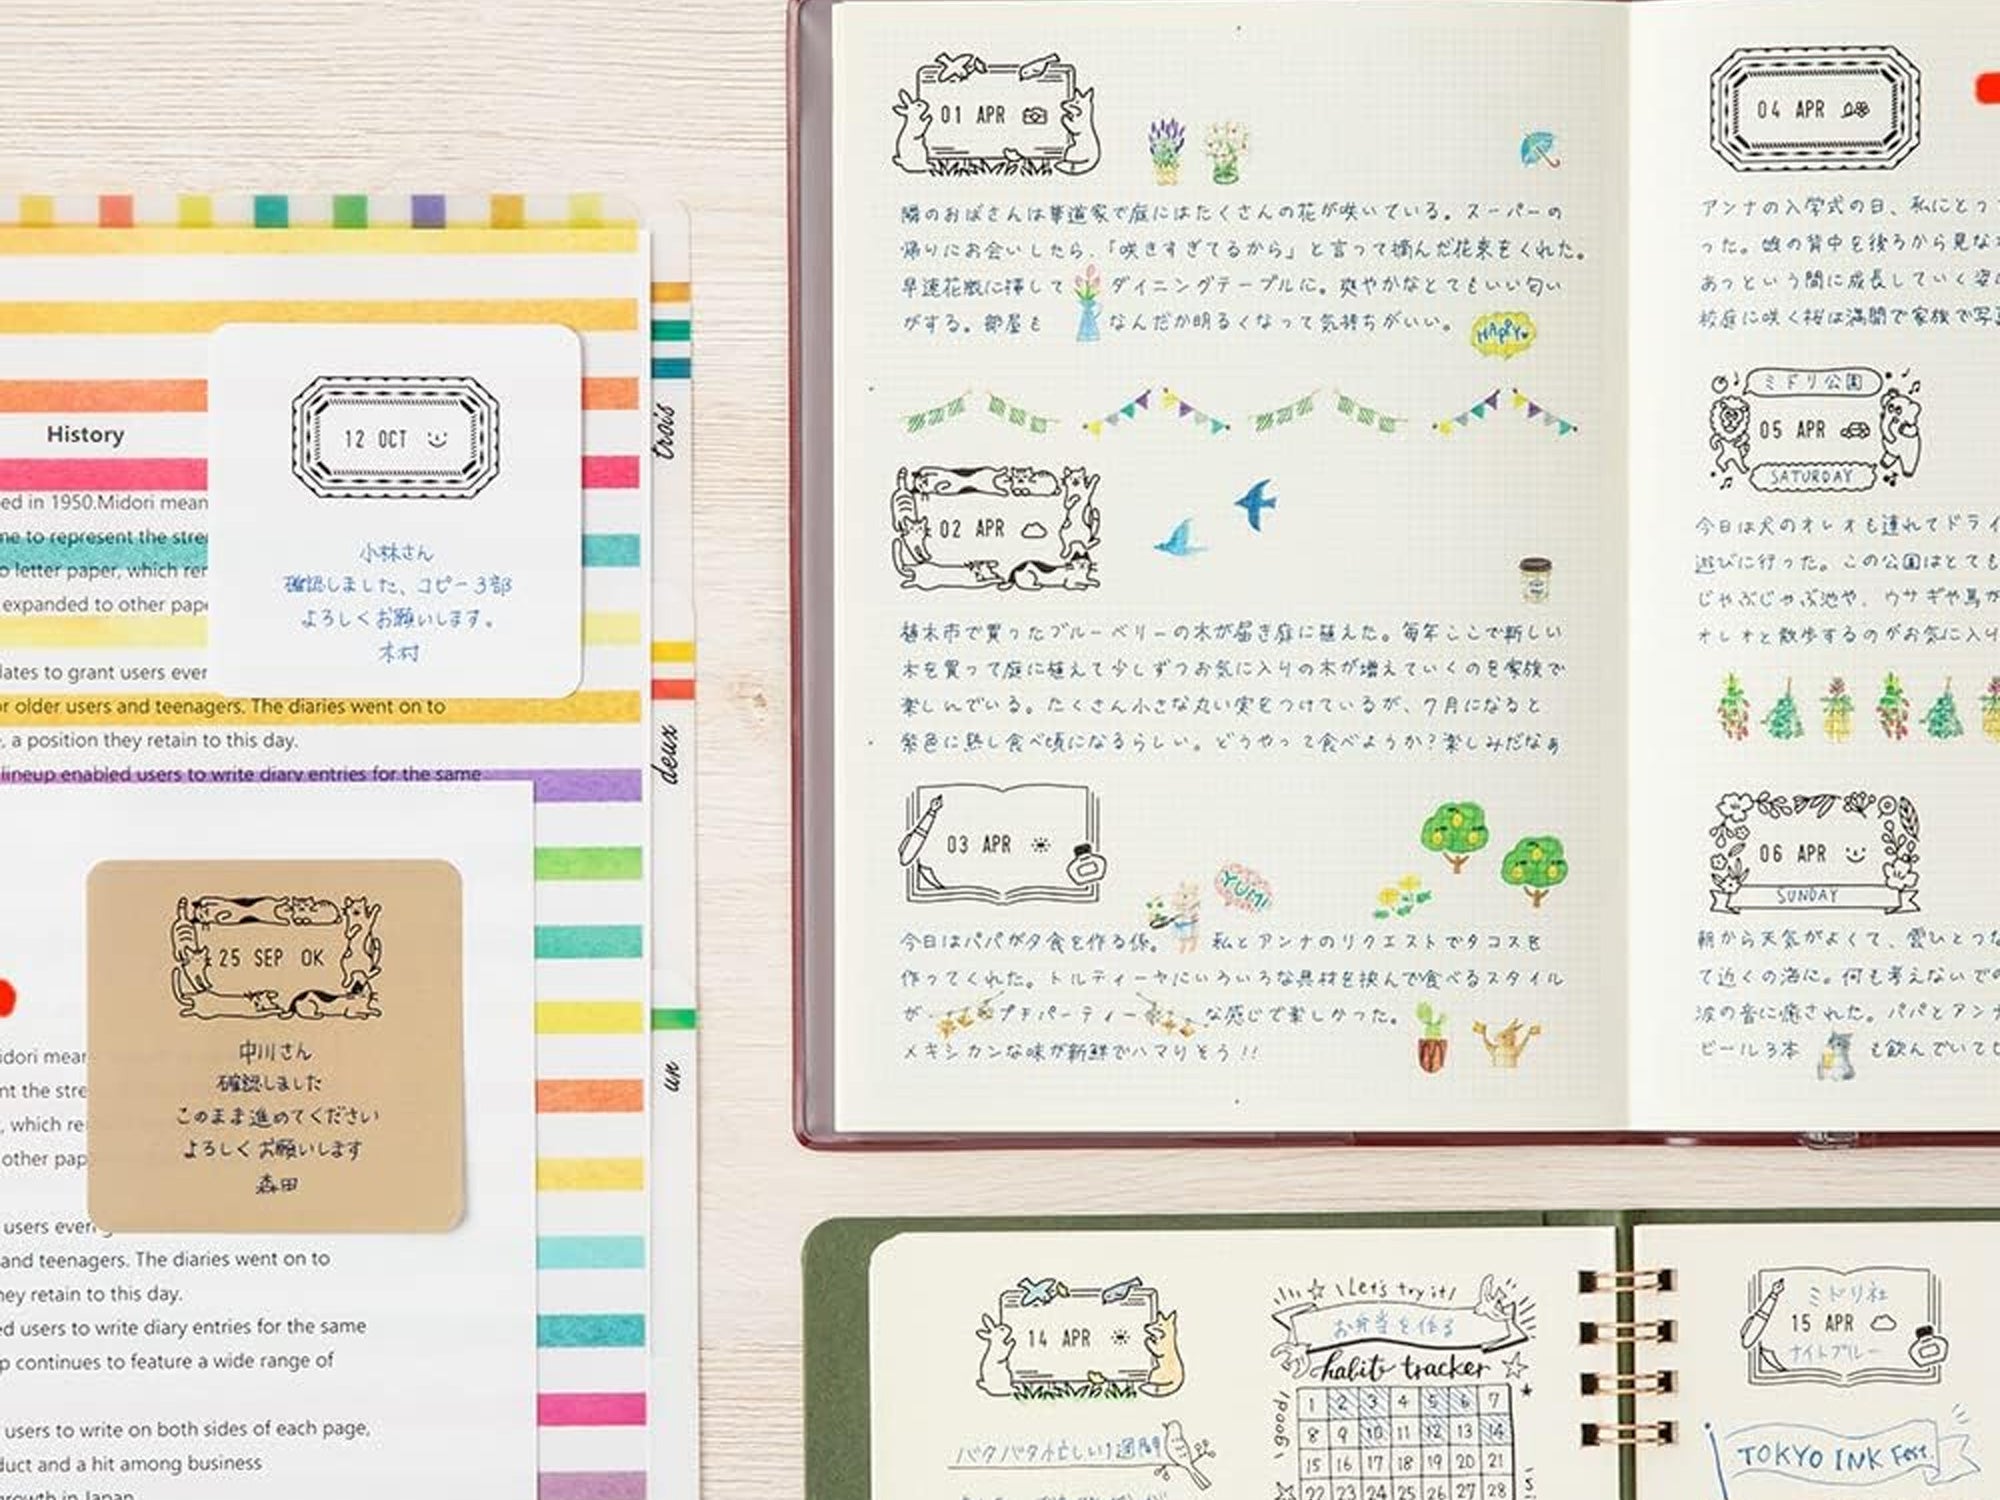 History
ed in 1950.Midori mean
me to represent the stre
o letter paper, which rer
expanded to other pape
lates to grant users ever
or older users and teenagers. The diaries went on to
, a position they retain to this day.
lineup enabled users to write diary entries for the same
12 OCT
小林さん
確認しました、コピー3部
よろしくお願いします。
木村
trois
deux
un
25 SEP OK
中川さん
確認しました
このまま進めてください
よろしくお願いします
森田
idori mean
nt the stre
, which re
other pap
users even
and teenagers. The diaries went on to
hey retain to this day.
ed users to write diary entries for the same
p continues to feature a wide range of
users to write on both sides of each page,
duct and a hit among business
growth in Japan
01 APR
隣のおばさんは華道家で庭にはたくさんの花が咲いている。スーパーの
帰りにお会いしたら、「咲きすぎてるから」と言って摘んだ花束をくれた。
早速花瓶に挿して ダイニングテーブルに。爽やかなとてもいい匂い
がする。部屋も なんだか明るくなって気持ちがいい。
HAPPY
02 APR
植木市で買ったブルーベリーの木が届き庭に植えた。毎年ここで新しい
木を買って庭に植えて少しずつお気に入りの木が増えていくのを家族で
楽しんでいる。たくさん小さな丸い実をつけているが、7月になると
紫色に熟し食べ頃になるらしい。どうやって食べようか?楽しみだなぁ
03 APR
YUM!
今日はパパが夕食を作る係。 私とアンナのリクエストでタコスを
作ってくれた。トルティーヤにいろいろな具材を挟んで食べるスタイル
が プチパーティー な感じで楽しかった。
メキシカンな味が新鮮でハマりそう!!
04 APR
アンナの入学式の日、私にとっ
った。娘の背中を後ろから見な
あっという間に成長していく姿に
校庭に咲く桜は満開で家族で写真
ミドリ公園
05 APR
SATURDAY
今日は犬のオレオも連れてドライ
遊びに行った。この公園はとても
じゃぶじゃぶ池や、ウサギや馬が
オレオと散歩するのがお気に入り
06 APR
SUNDAY
朝から天気がよくて、雲ひとつな
て近くの海に。何も考えないでの
波の音に癒された。パパとアンナ
ビール3本 も飲んでいてし
14 APR
バタバタ忙しい1週間
Let's try it!
お弁当を作る
habit tracker
good!
1 2 3 4 5 6 7
8 9 10 11 12 13 14
15 16 17 18 19 20 21
22 23 24 25 26 27 28
ミドリ社
15 APR
ナイトブルー
TOKYO INK Fest.